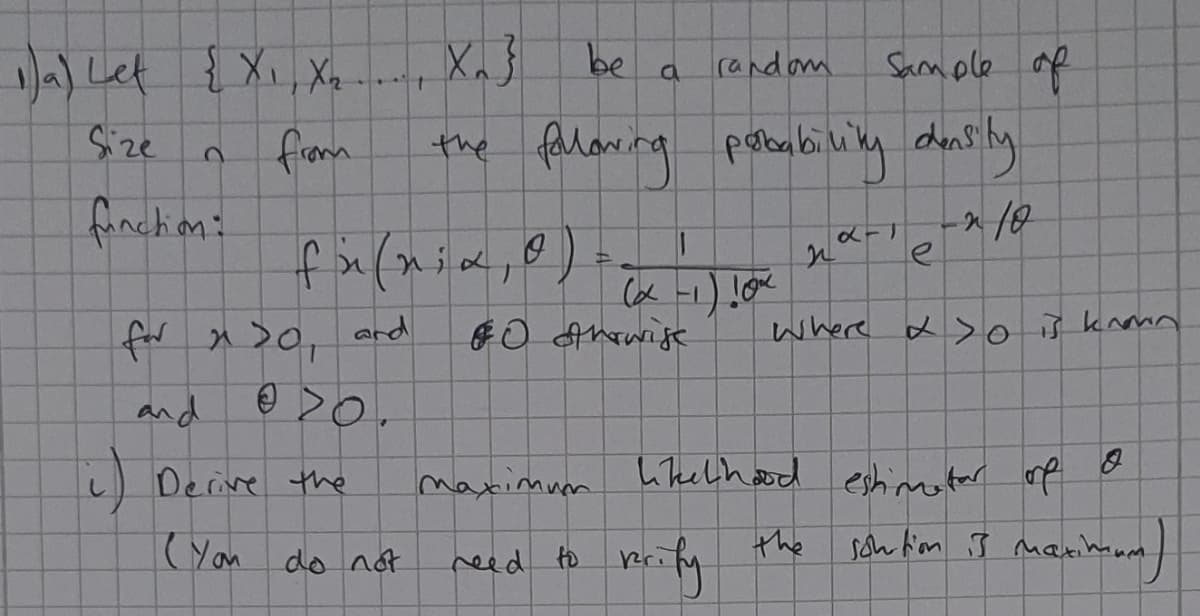 1)a) Let { X₁, X₂ ...., Xₙ } be a random sample of
Size n from the following probability density
function:
fx(x; α, θ) = 1/((α-1)! θ^α) x^(α-1) e^(-x/θ)
for x >0, and 0 otherwise where α >0 is known
and θ >0.
i) Derive the maximum likelihood estimator of θ
(You do not need to verify the solution is maximum)